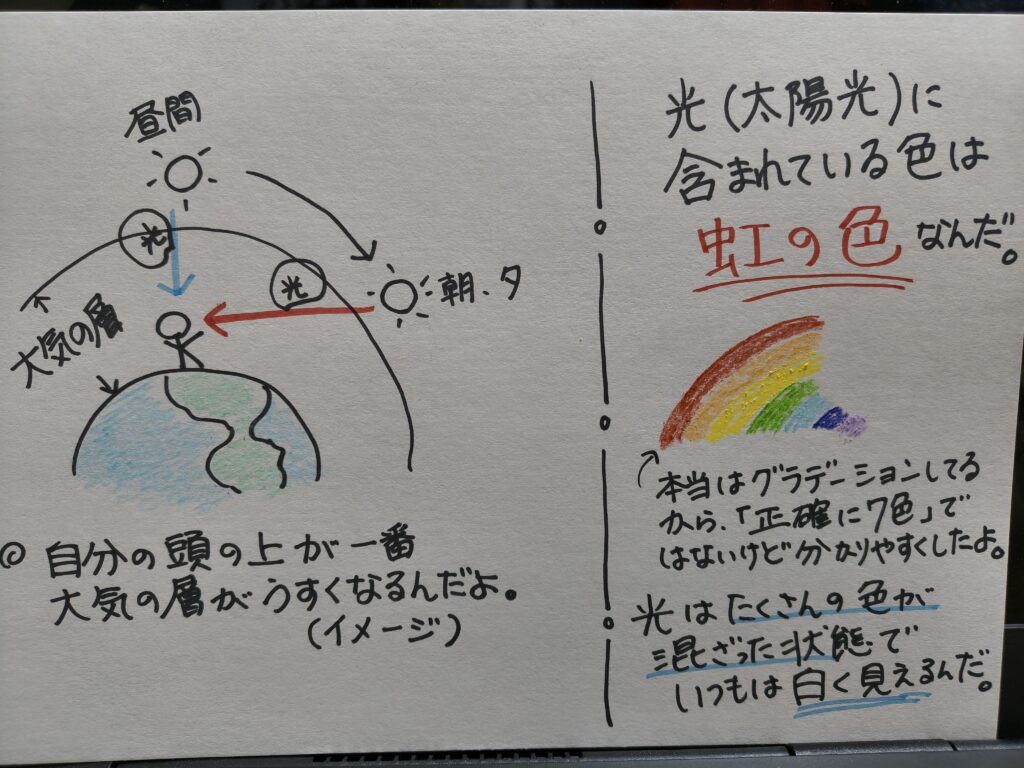 昼間
光
光
朝、夕
大気の層
◎ 自分の頭の上が一番
大気の層がうすくなるんだよ。
(イメージ)
光(太陽光)に
含まれている色は
虹の色なんだ。
本当はグラデーションしてる
から、「正確に7色」で
はないけど分かりやすくしたよ。
光はたくさんの色が
混ざった状態で
いつもは白く見えるんだ。